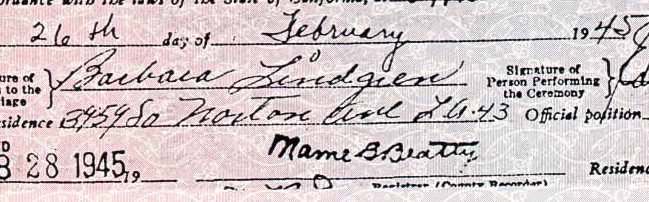 ordance with the laws of the State of California,
26th day of February 1945
ure of Barbara Lindgren Signature of
n to the Person Performing
iage the Ceremony
sidence 3454 So Norton Ave L.A. 43 Official position
B 28 1945, 19 Mame B Beatty Residen
Registrar (County Recorder)